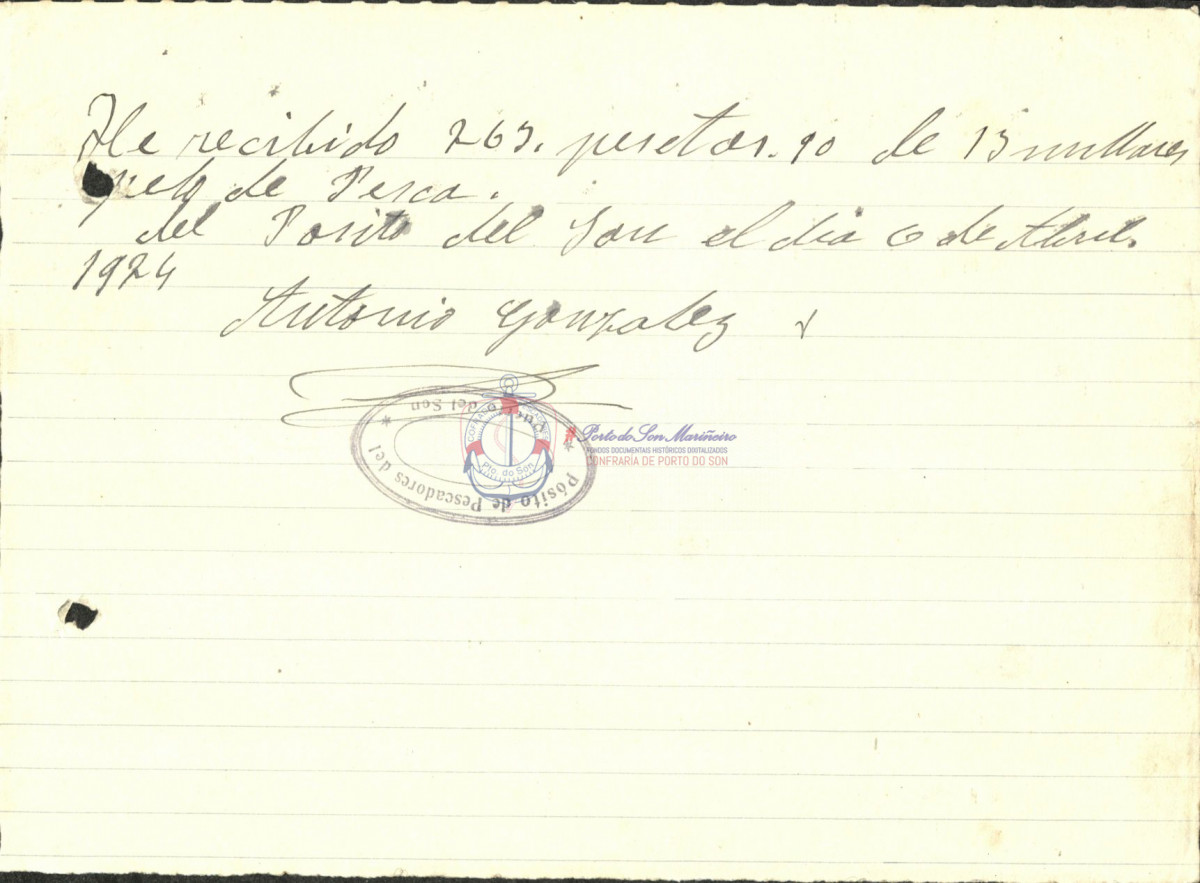 He recibido 265. pesetas. 90 de 13 millares
de Pesca.
del Posito del Son el dia 6 de Abril.
1924
Antonio Gonzalez
* Pósito de Pescadores del * Puerto del Son
COFRADÍA
Pto. do Son
Porto do Son Mariñeiro
FONDOS DOCUMENTAIS HISTÓRICOS DIXITALIZADOS
CONFRARÍA DE PORTO DO SON